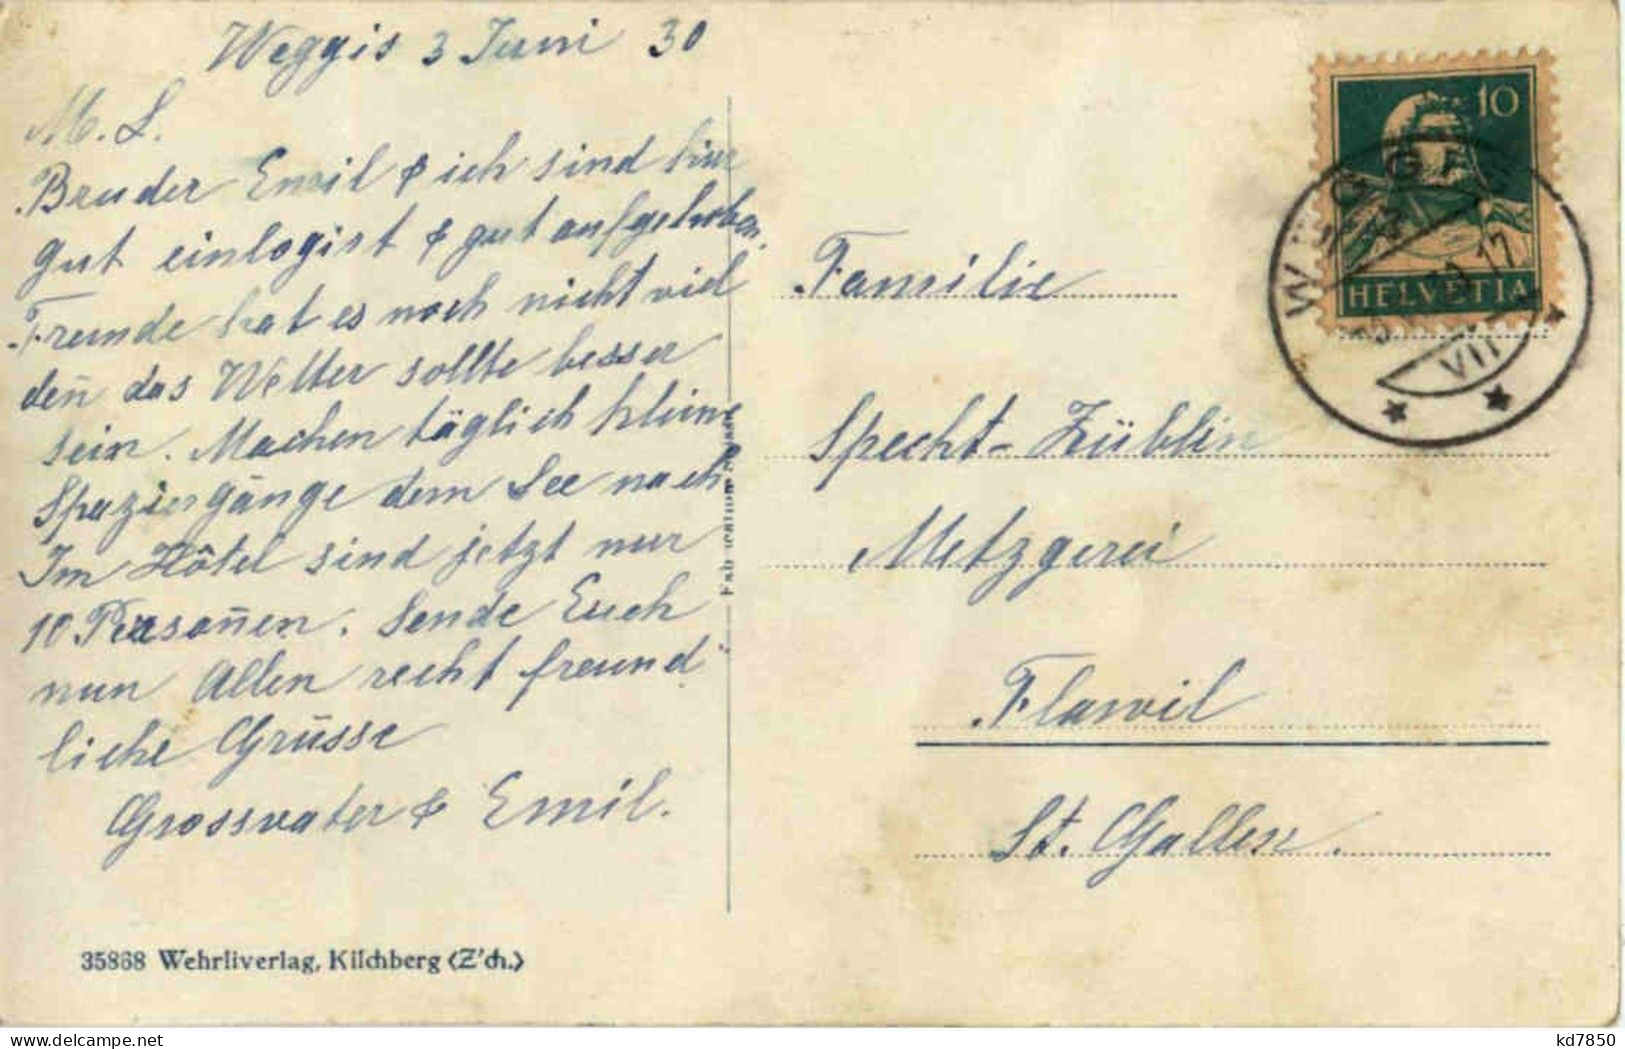 Weggis 3 Juni 30
M. L.
Bruder Emil & ich sind hier
gut einlogirt & gut aufgehoben.
Fremde hat es noch nicht viel
den̄ das Wetter sollte besser
sein. Machen täglich kleine
Spaziergänge dem See nach
Im Hôtel sind jetzt nur
10 Persoñen. Sende Euch
nun Allen recht freund
liche Grüsse
Grossvater & Emil.
35868 Wehrliverlag, Kilchberg (Z'ch.)
10
HELVETIA
WEGGIS
VII
17
Familie
Specht-Züblin
Metzgerei
Flawil
St. Gallen.
kd7850